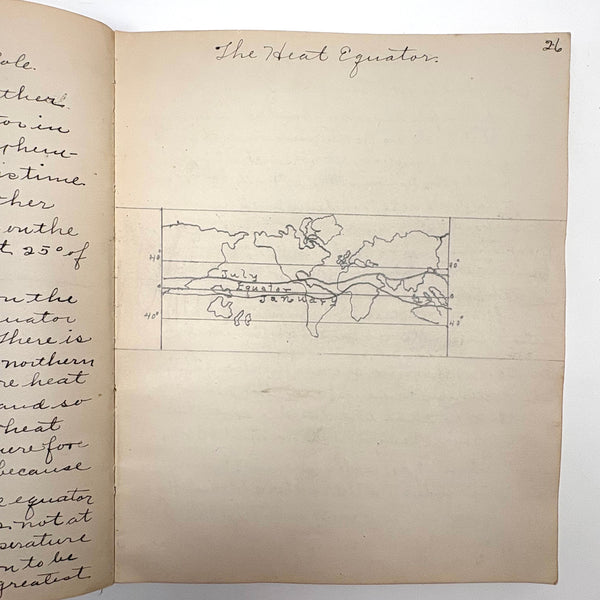 ole.
ther
tor in
phere-
is time
ther
on the
t 25° of
on the
uator
There is
northern
re heat
and so
heat
ure force
because
e equator
is not at
perature
n to be
greatest
26
The Heat Equator.
40° 40°
July
0 Equator 0
January
40° 40°